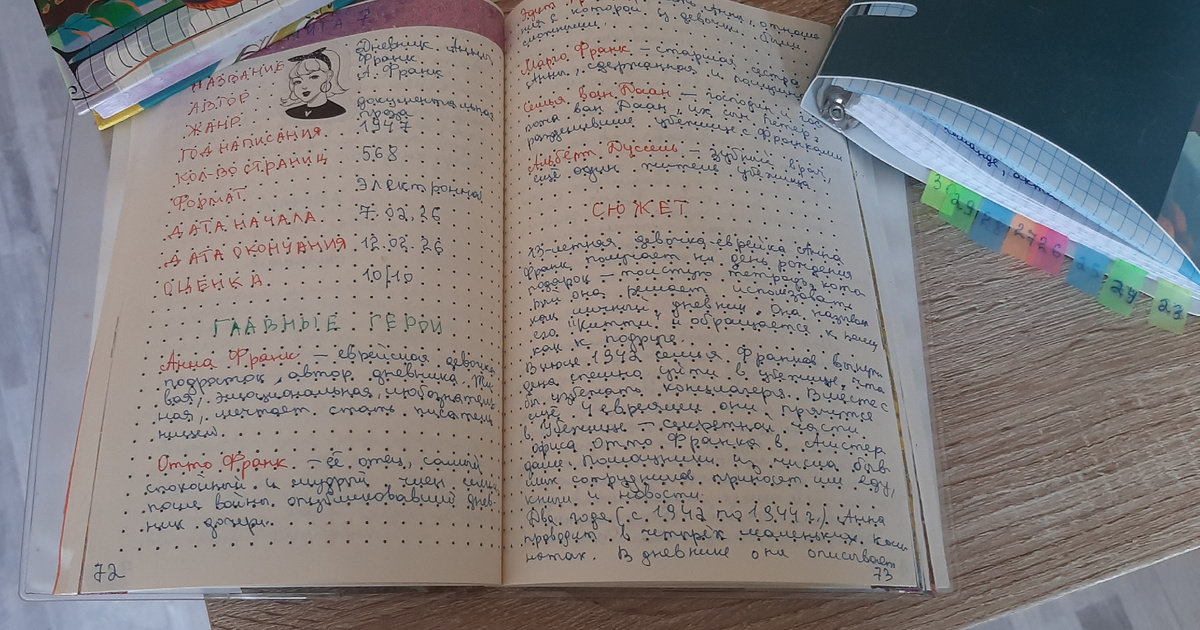 НАЗВАНИЕ Дневник Анны Франк
АВТОР А. Франк
ЖАНР документальная проза
ГОД НАПИСАНИЯ 1947
КОЛ-ВО СТРАНИЦ 568
ФОРМАТ электронный
ДАТА НАЧАЛА 7.02.26
ДАТА ОКОНЧАНИЯ 12.02.26
ОЦЕНКА 10/10
ГЛАВНЫЕ ГЕРОИ
Анна Франк – еврейская девочка
подросток, автор дневника. Жи
вая, эмоциональная, любознатель
ная, мечтает стать писатель
ницей.
Отто Франк – её отец, самый
спокойный и мудрый член семьи,
после войны опубликовавший днев-
ник дочери.
72
Анны, отноше
ния с которой у девочки были
сложными.
Марго Франк – старшая сестра
Анны, сдержанная и
Семья ван Даан – господин, гос
пожа ван Даан, их сын Петер,
разделившие убежище с Франками
Альберт Дуссель – зубной врач,
ещё один житель убежища.
СЮЖЕТ
13-летняя девочка-еврейка Анна
Франк получает на день рождения
подарок – толстую тетрадь, кото
рую она решает использовать
как личный дневник. Она назвала
его "Китти" и обращается к нему
как к подруге.
В июле 1942 семья Франков вынуж
дена спешно уйти в убежище, что
бы избежать концлагеря. Вместе с
ещё 4 евреями они прячутся
в Убежище – секретной части
офиса Отто Франка в Амстер
даме. Помощники из числа быв
ших сотрудников приносят им еду,
книги и новости.
Два года (с 1942 по 1944 г.) Анна
проводит в четырёх маленьких ком
натах. В дневнике она описывает
73
29
28
27
26
25
24
23